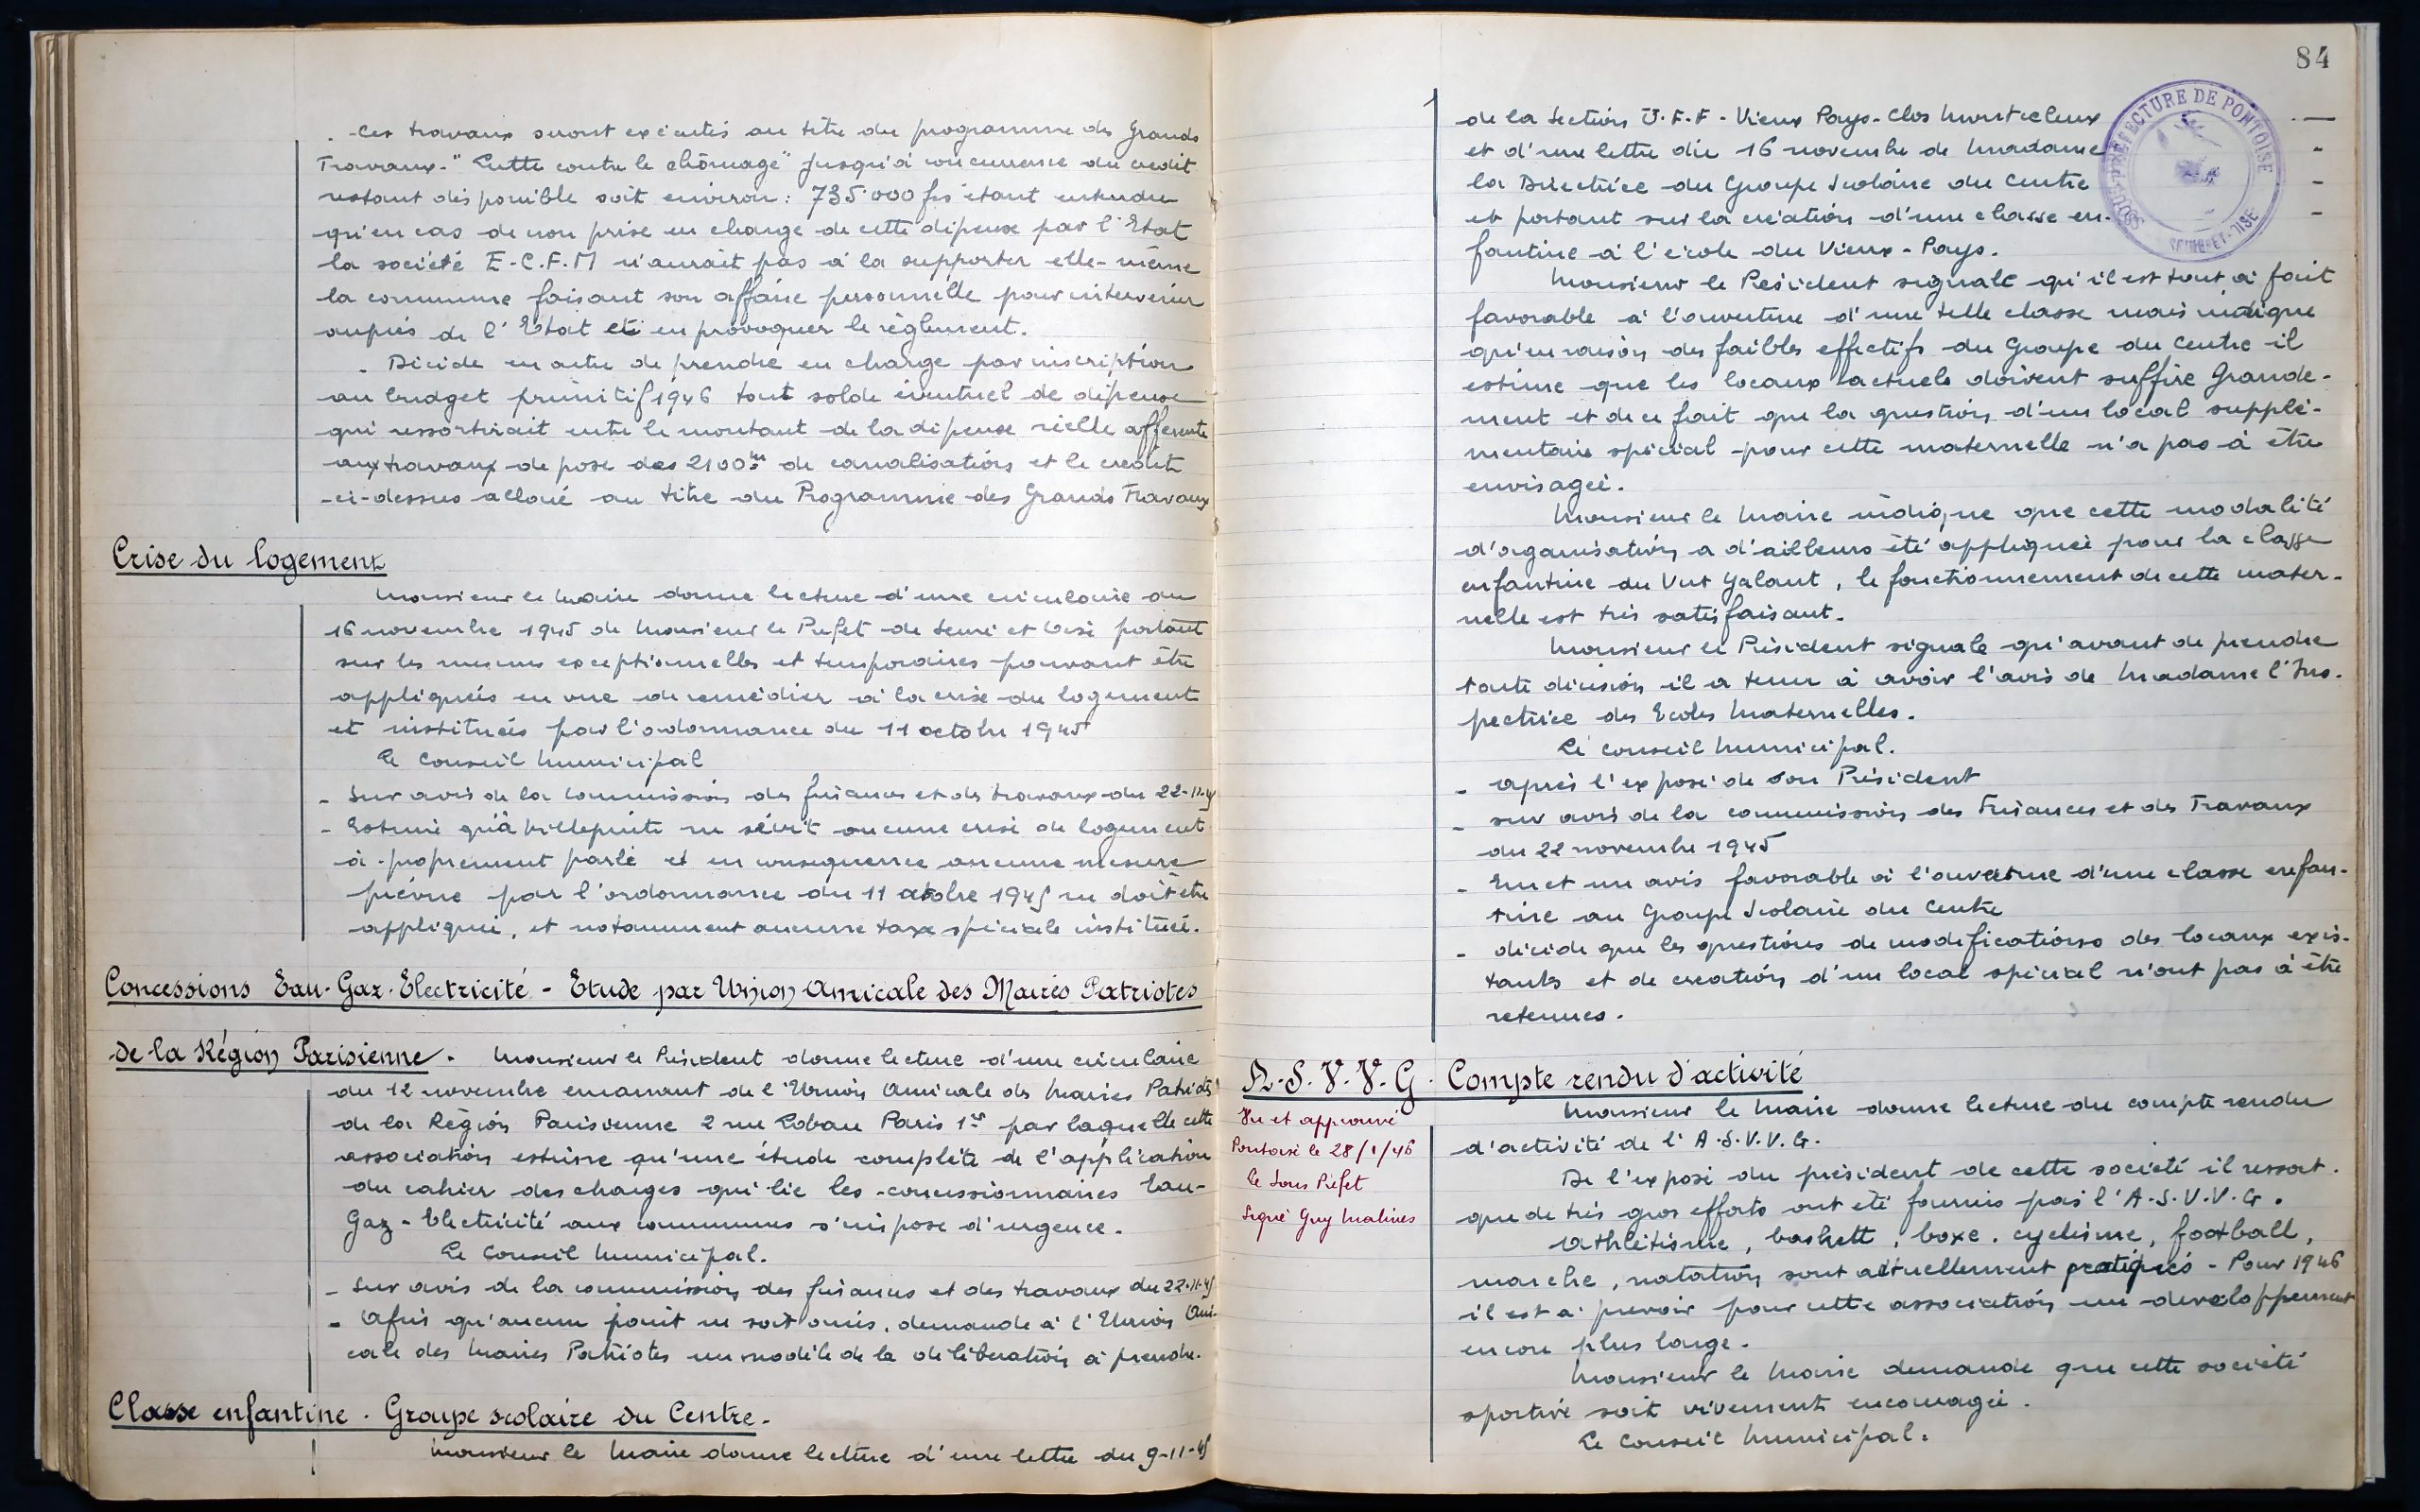 - Ces travaux seront exécutés au titre du programme des Grands
Travaux - "Lutte contre le chômage" jusqu'à concurrence du crédit
restant disponible soit environ : 735.000 frs étant entendu
qu'en cas de non prise en charge de cette dépense par l'Etat
la société E.C.F.M n'aurait pas à la supporter elle-même
la commune faisant son affaire personnelle pour intervenir
auprès de l'Etat et en provoquer le règlement.
- Décide en outre de prendre en charge par inscription
au budget primitif 1946 tout solde éventuel de dépense
qui ressortirait entre le montant de la dépense réelle afférente
aux travaux de pose des 2100 m de canalisations et le crédit
ci-dessus alloué au titre du Programme des Grands Travaux
Crise du logement
Monsieur le Maire donne lecture d'une circulaire du
16 novembre 1945 de Monsieur le Préfet de Seine et Oise portant
sur les mesures exceptionnelles et temporaires pouvant être
appliquées en vue de remédier à la crise du logement
et instituées par l'ordonnance du 11 octobre 1945
Le Conseil Municipal
- Sur avis de la commission des finances et des travaux du 22-11-45
- Estime qu'à Villepinte ne sévit aucune crise de logement
à proprement parlé et en conséquence aucune mesure
prévue par l'ordonnance du 11 octobre 1945 ne doit être
appliquée, et notamment aucune taxe spéciale instituée.
Concessions Eau-Gaz-Electricité - Etude par Union Amicale des Maires Patriotes
de la Région Parisienne. Monsieur le Président donne lecture d'une circulaire
du 12 novembre emanant de l'Union Amicale des Maires Patriotes
de la Région Parisienne 2 rue Lobau Paris 1er par laquelle cette
association estime qu'une étude complète de l'application
du cahier des charges qui lie les concessionnaires Eau-
Gaz-Electricité aux communes s'impose d'urgence.
Le Conseil Municipal.
- Sur avis de la commission des finances et des travaux du 22-11-45
- Afin qu'aucun point ne soit omis, demande à l'Union Ami-
cale des Maires Patriotes un modèle de la délibération à prendre.
Classe enfantine. Groupe scolaire du Centre.
Monsieur le Maire donne lecture d'une lettre du 9-11-45
84
SOUS-PRÉFECTURE DE PONTOISE
SEINE-ET-OISE
de la Section U.F.F - Vieux Pays - Clos Montceleux
et d'une lettre du 16 novembre de Madame
la Directrice du Groupe Scolaire du Centre
et portant sur la création d'une classe en-
fantine à l'école du Vieux-Pays.
Monsieur le Président signale qu'il est tout à fait
favorable à l'ouverture d'une telle classe mais indique
qu'en raison des faibles effectifs du Groupe du Centre il
estime que les locaux actuels doivent suffire Grande-
ment et de ce fait que la question d'un local supplé-
mentaire spécial pour cette maternelle n'a pas à être
envisagée.
Monsieur le Maire indique que cette modalité
d'organisation a d'ailleurs été appliquée pour la classe
enfantine du Vert Galant, le fonctionnement de cette mater-
nelle est très satisfaisant.
Monsieur le Président signale qu'avant de prendre
toute décision il a tenu à avoir l'avis de Madame l'Ins-
pectrice des Ecoles Maternelles.
Le Conseil Municipal.
- après l'exposé de son Président
- sur avis de la commission des Finances et des Travaux
du 22 novembre 1945
- Emet un avis favorable à l'ouverture d'une classe enfan-
tine au Groupe Scolaire du Centre
- décide que les questions de modifications des locaux exis-
tants et de création d'un local spécial n'ont pas à être
retenues.
A.S.V.V.G. Compte rendu d'activité
Vu et approuvé
Pontoise le 28/1/46
Le Sous Préfet
Signé Guy Malines
Monsieur le Maire donne lecture du compte rendu
d'activité de l'A.S.V.V.G.
De l'exposé du président de cette société il ressort
que de très gros efforts ont été fournis par l'A.S.V.V.G.
Athlétisme, baskett, boxe, cyclisme, football,
marche, natation sont actuellement pratiqués - Pour 1946
il est à prévoir pour cette association un développement
encore plus large.
Monsieur le Maire demande que cette société
sportive soit vivement encouragée.
Le Conseil Municipal.